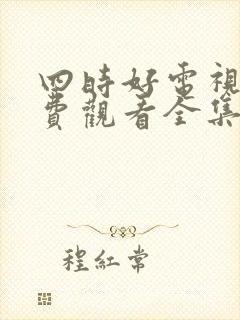 四時好電視
費觀看全集
程紅常